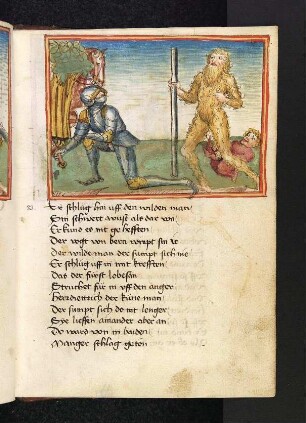 Er schlug hin uff den wilden man
Sin schwert wüst als dar von
Er kund es nit ge hefften
Der vogt von bern verpt sin
Der wilde man der sumpt sich nie
Er schlug uff in mit krefften
Das der fürst lobesan
Struchet für in uff den anger
Herr diettrich der küne man
Der sumpt sich do nit lenger
Sye lieffen ainander aber an
Do ward von in baiden
Manger schlag geton